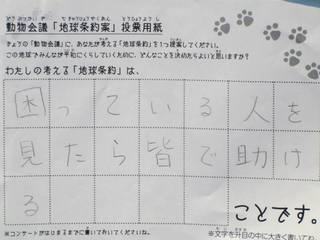 動物会議「地球条約案」投票用紙
きょうの「動物会議」に、あなたが考える「地球条約」を1つ提案してください。
この地球でみんなが平和にくらしていくために、どんなことを決めたらよいと思いますか?
わたしの考える「地球条約」は、
困っている人を
見たら皆で助け
る
ことです。
※コンサートがはじまるまでに書いておいてくださいね。
※文字を升目の中に大きく書いてね